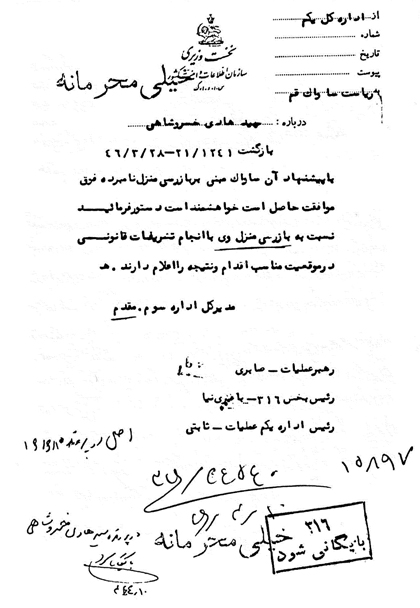 از اداره کل یکم
شماره
تاریخ
پیوست
به ریاست ساواک قم
نخست وزیری
سازمان اطلاعات و امنیت کشور
س.ا.و.ا.ک
خیلی محرمانه
درباره : سید هادی خسروشاهی
بازگشت ۲۱/۱۲۴۱-۴۶/۳/۲۸
با پیشنهاد آن ساواک مبنی بر بازرسی منزل نامبرده فوق
موافقت حاصل است خواهشمند است دستور فرمائید
نسبت به بازرسی منزل وی با انجام تشریفات قانونی
در موقعیت مناسب اقدام و نتیجه را اعلام دارند . ه
مدیر کل اداره سوم . مقدم
رهبر عملیات - صابری
رئیس بخش ۳۱۶-
رئیس اداره یکم عملیات - ثابتی
اصل در پرونده
۱۵۸۹۷
خیلی محرمانه
۳۱۶
بایگانی شود
در پرونده سید هادی خسروشاهی
بایگانی شود